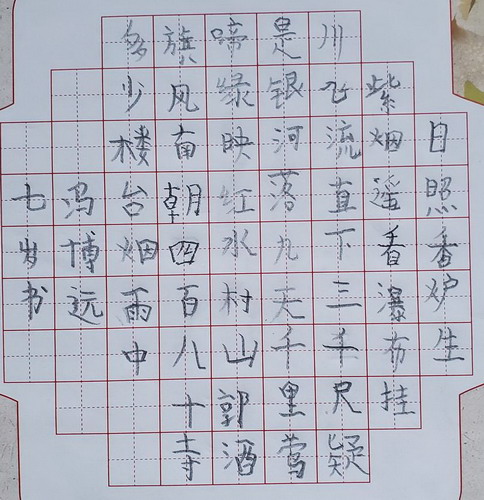 日照香炉生
紫烟遥看瀑布挂
川飞流直下三千尺疑
是银河落九天千里莺
啼绿映红水村山郭酒
旗风南朝四百八十寺
多少楼台烟雨中
冯博远
七岁书